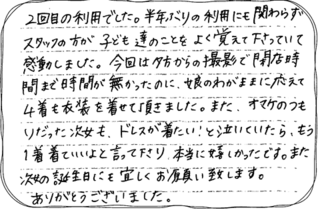 2回目の利用でした。半年ぶりの利用にも関わらず
スタッフの方が子ども達のことをよく覚えて下さっていて
感動しました。今回は夕方からの撮影で閉店時
間まで時間が無かったのに、娘のわがままに応えて
4着も衣装を着せて頂きました。また、オマケのつも
りだった次女も、ドレスが着たい!と泣いていたら、もう
1着着ていいよと言って下さり、本当に嬉しかったです。また
次女の誕生日にも宜しくお願い致します。
ありがとうございました。